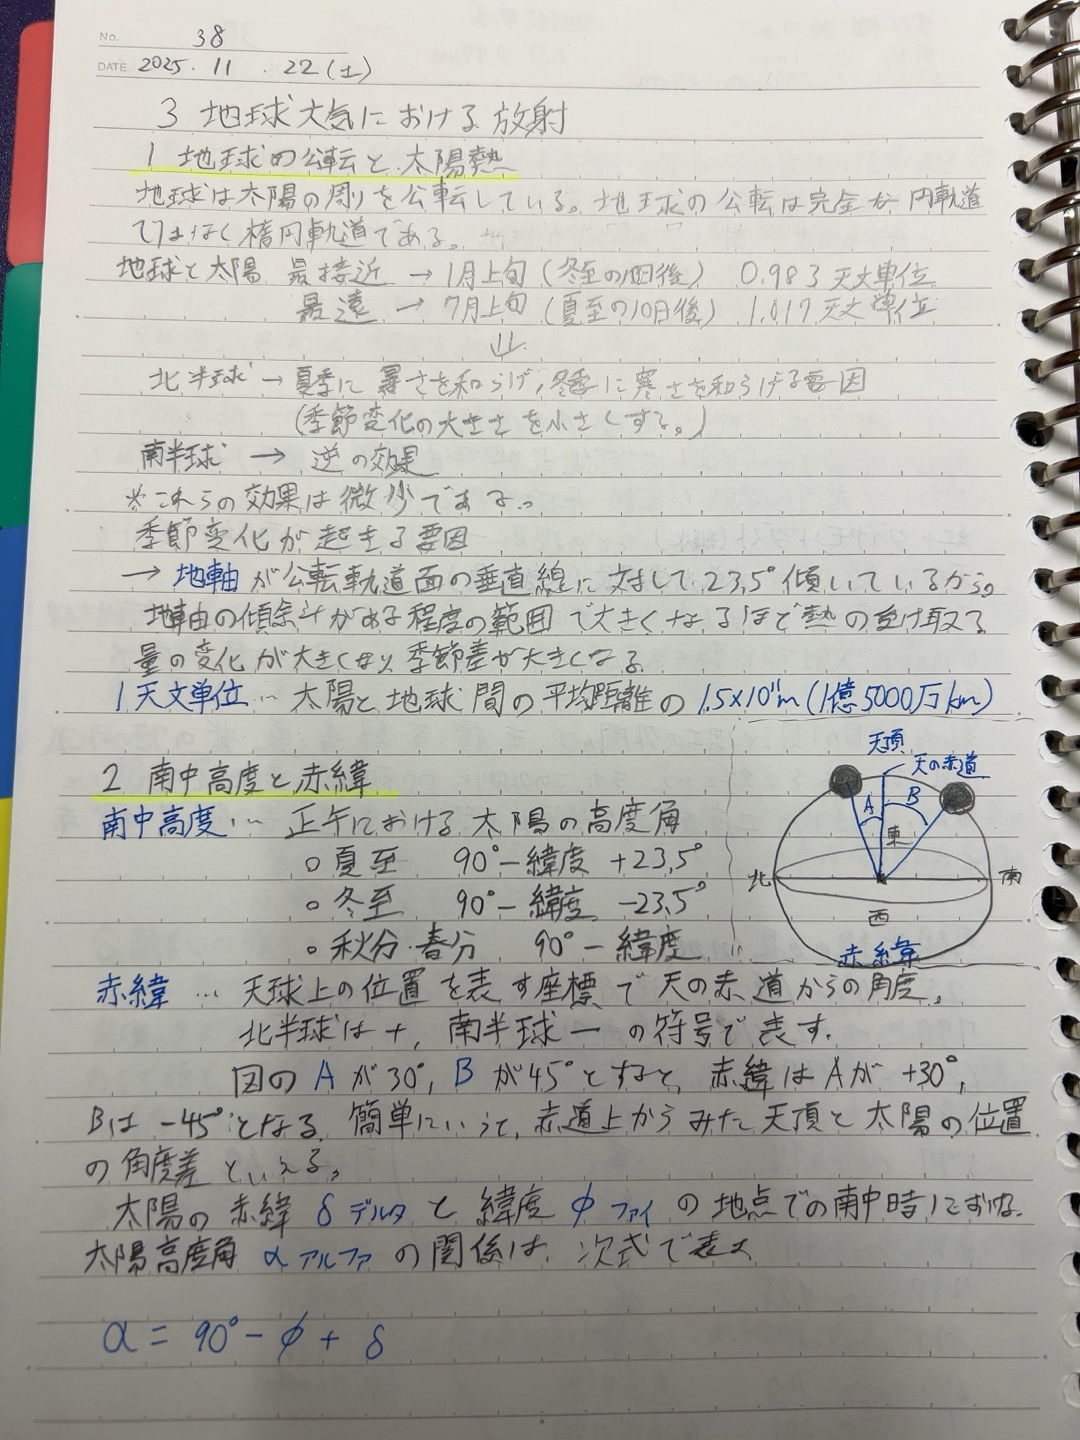 No. 38
DATE 2025.11.22(土)
3 地球大気における放射
1 地球の公転と太陽熱
地球は太陽の周りを公転している。地球の公転は完全な円軌道
ではなく楕円軌道である。
地球と太陽 最接近 → 1月上旬 (冬至の10日後) 0.983天文単位
最遠 → 7月上旬 (夏至の10日後) 1.017天文単位
⇓
北半球 → 夏季に暑さを和らげ、冬季に寒さを和らげる要因
(季節変化の大きさを小さくする。)
南半球 → 逆の効果
※これらの効果は微少である。
季節変化が起きる要因
→ 地軸が公転軌道面の垂直線に対して23.5°傾いているから。
地軸の傾斜がある程度の範囲で大きくなるほど熱の受け取る
量の変化が大きくなり季節差が大きくなる
1天文単位… 太陽と地球間の平均距離の1.5×10¹¹m(1億5000万km)
2 南中高度と赤緯
南中高度… 正午における太陽の高度角
○夏至 90°-緯度 +23.5°
○冬至 90°-緯度 -23.5°
○秋分・春分 90°-緯度
天頂
天の赤道
A B
東
北 南
西
赤緯
赤緯 … 天球上の位置を表す座標で天の赤道からの角度。
北半球は+, 南半球-の符号で表す.
図のAが30°, Bが45°とすると, 赤緯はAが+30°,
Bは-45°となる. 簡単にいうと, 赤道上からみた天頂と太陽の位置
の角度差といえる。
太陽の赤緯 δ デルタ と緯度 φ ファイ の地点での南中時における
太陽高度角 α アルファ の関係は、次式で表す
α = 90° - φ + δ